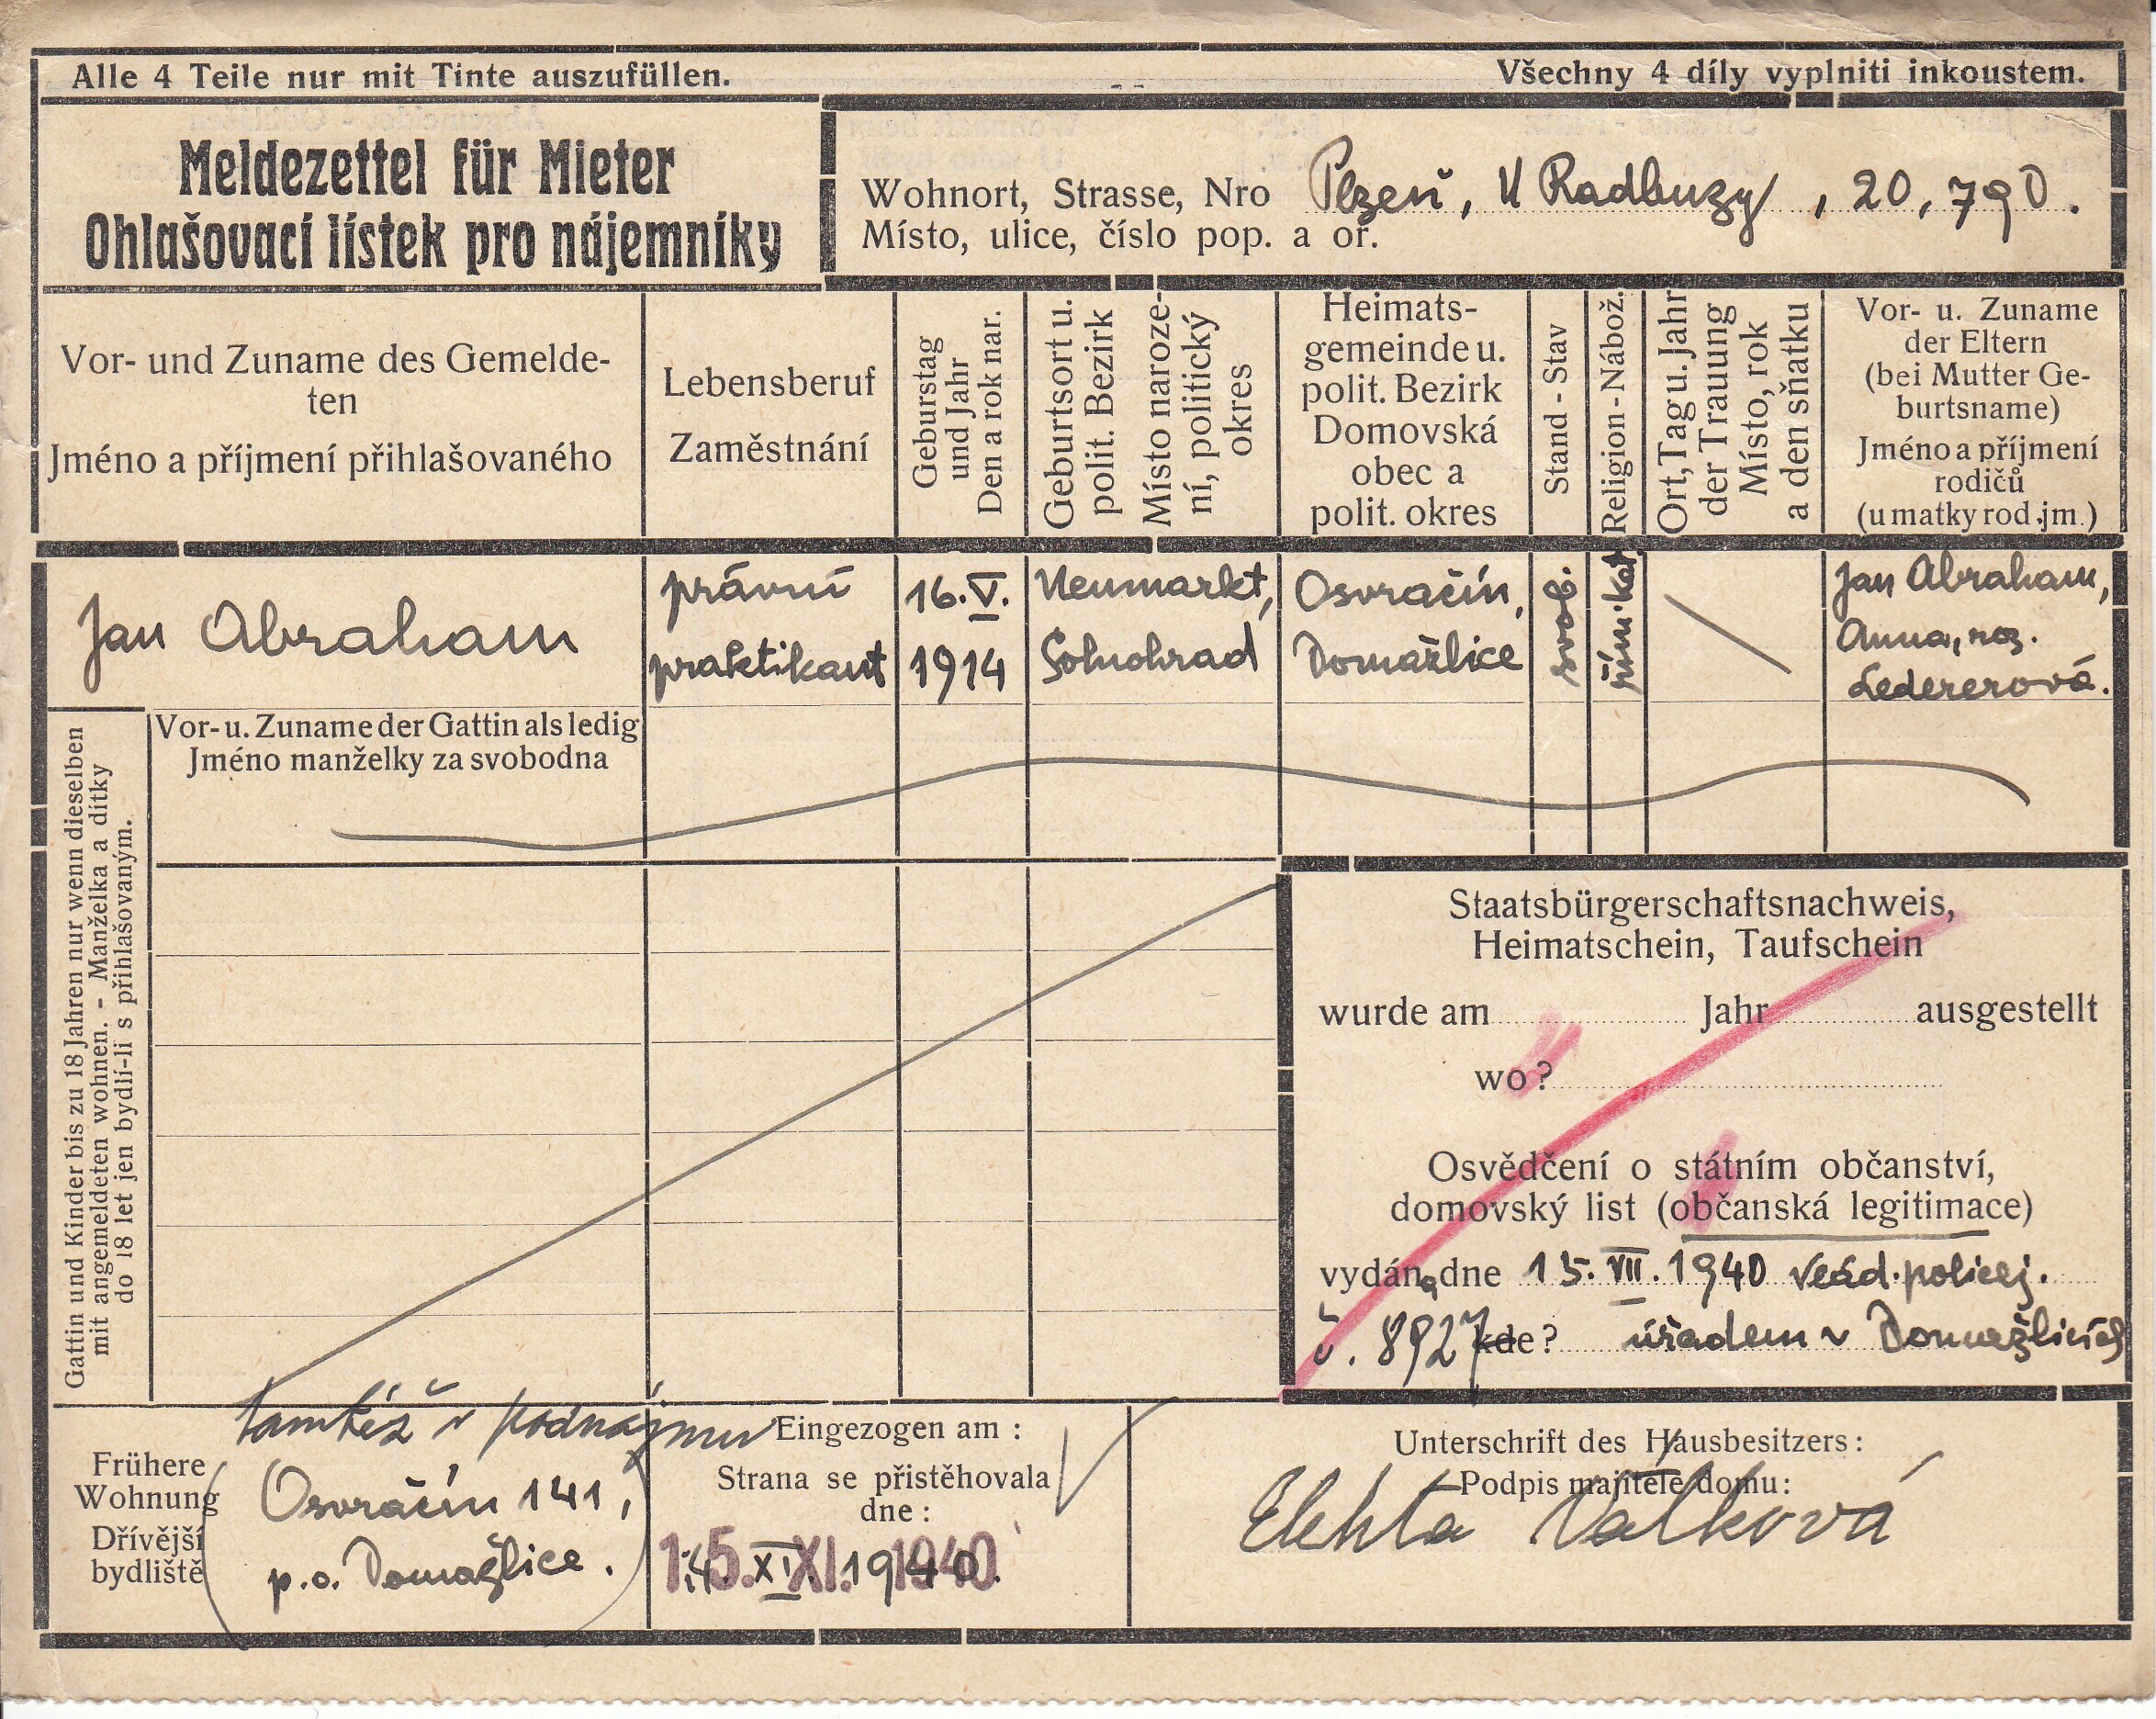 Alle 4 Teile nur mit Tinte auszufüllen.
Všechny 4 díly vyplniti inkoustem.
Meldezettel für Mieter
Ohlašovací lístek pro nájemníky
Wohnort, Strasse, Nro Plzeň, U Radbuzy, 20, 790.
Místo, ulice, číslo pop. a oř.
Vor- und Zuname des Gemelde-
ten
Jméno a příjmení přihlašovaného
Lebensberuf
Zaměstnání
Geburstag
und Jahr
Den a rok nar.
Geburtsort u.
polit. Bezirk
Místo naroze-
ní, politický
okres
Heimats-
gemeinde u.
polit. Bezirk
Domovská
obec a
polit. okres
Stand - Stav
Religion - Nábož.
Ort, Tag u. Jahr
der Trauung
Místo, rok
a den sňatku
Vor- u. Zuname
der Eltern
(bei Mutter Ge-
burtsname)
Jméno a příjmení
rodičů
(u matky rod. jm.)
Jan Abraham
právní
praktikant
16. V.
1914
Neumarkt,
Solnohrad
Osvračín,
Domažlice
svob.
řím. kat.
Jan Abraham,
Anna, roz.
Ledererová.
Vor- u. Zuname der Gattin als ledig
Jméno manželky za svobodna
Gattin und Kinder bis zu 18 Jahren nur wenn dieselben
mit angemeldeten wohnen. - Manželka a dítky
do 18 let jen bydlí-li s přihlašovaným.
Staatsbürgerschaftsnachweis,
Heimatschein, Taufschein
wurde am Jahr ausgestellt
wo?
Osvědčení o státním občanství,
domovský list (občanská legitimace)
vydána dne 15. VII. 1940 vlád. policej.
č. 8927 kde? úřadem v Domažlicích
tamtéž v podnájmu
Frühere
Wohnung
Dřívější
bydliště
Osvračín 141,
p. o. Domažlice.
Eingezogen am:
Strana se přistěhovala
dne:
15. XI. 1940
Unterschrift des Hausbesitzers:
Podpis majitele domu:
Valková